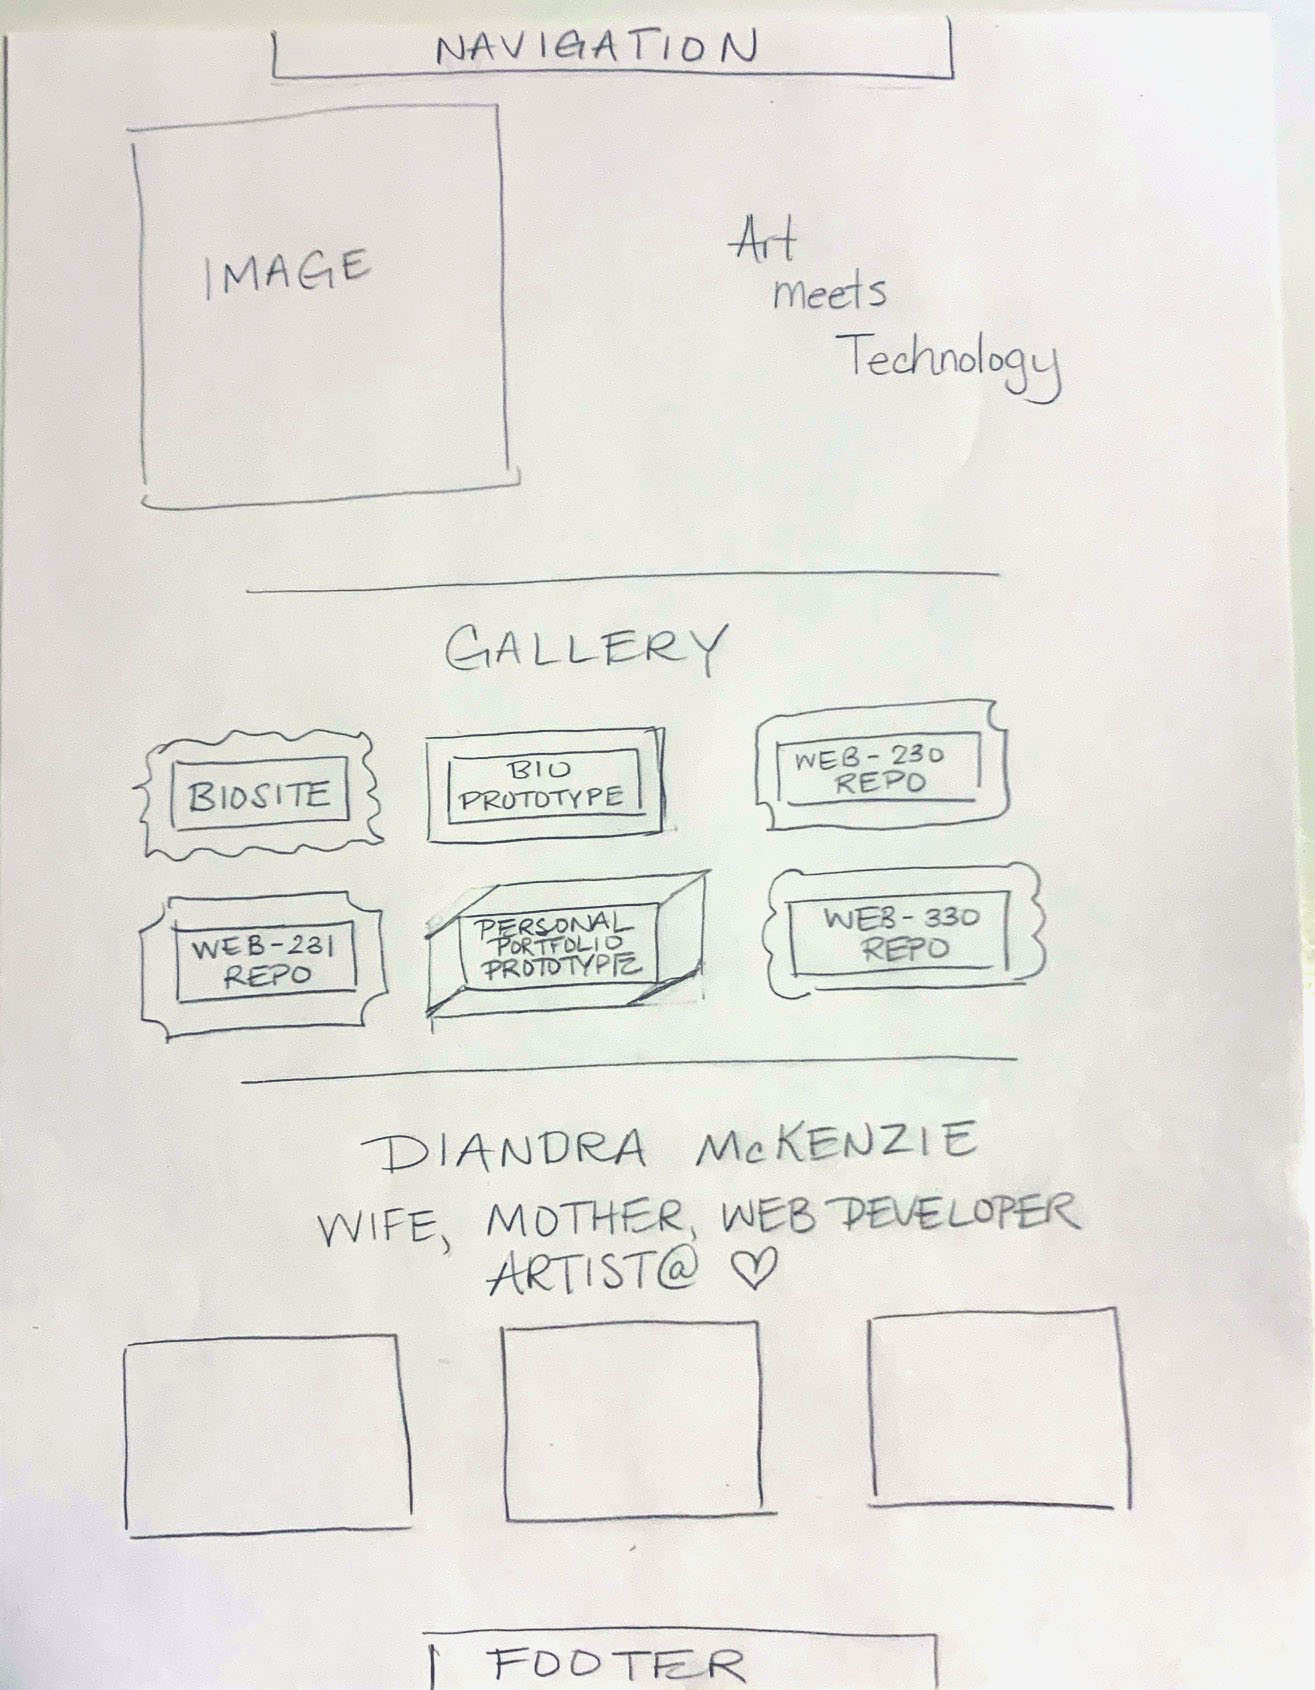 NAVIGATION
IMAGE
Art
meets
Technology
GALLERY
BIOSITE
BIO
PROTOTYPE
WEB-230
REPO
WEB-231
REPO
PERSONAL
PORTFOLIO
PROTOTYPE
WEB-330
REPO
DIANDRA McKENZIE
WIFE, MOTHER, WEB DEVELOPER
ARTIST@ ♡
FOOTER